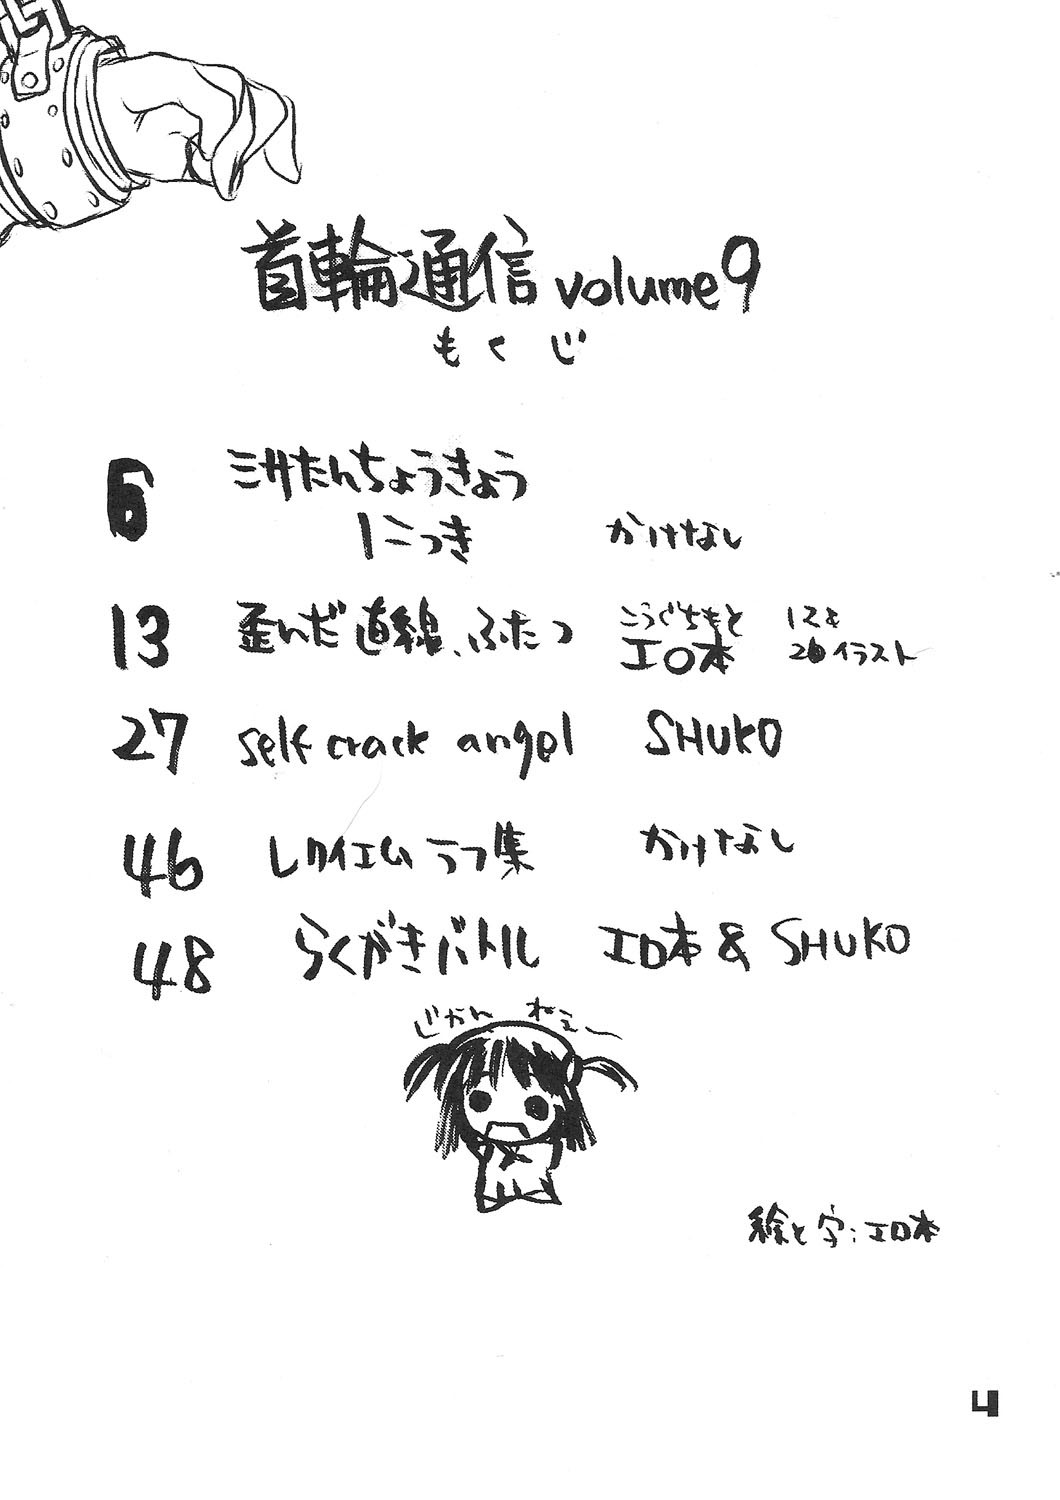 首輪通信 volume9
もくじ
6 三サたんちょうきょう
にっき かけなし
13 歪んだ直線、ふたつ こうぐちもと
エロ本 イラスト
27 self crack angel SHUKO
46 レクイエム ラフ集 かけなし
48 らくがきバトル エロ本 & SHUKO
じかん ねぇー
絵と字:エロ本
4